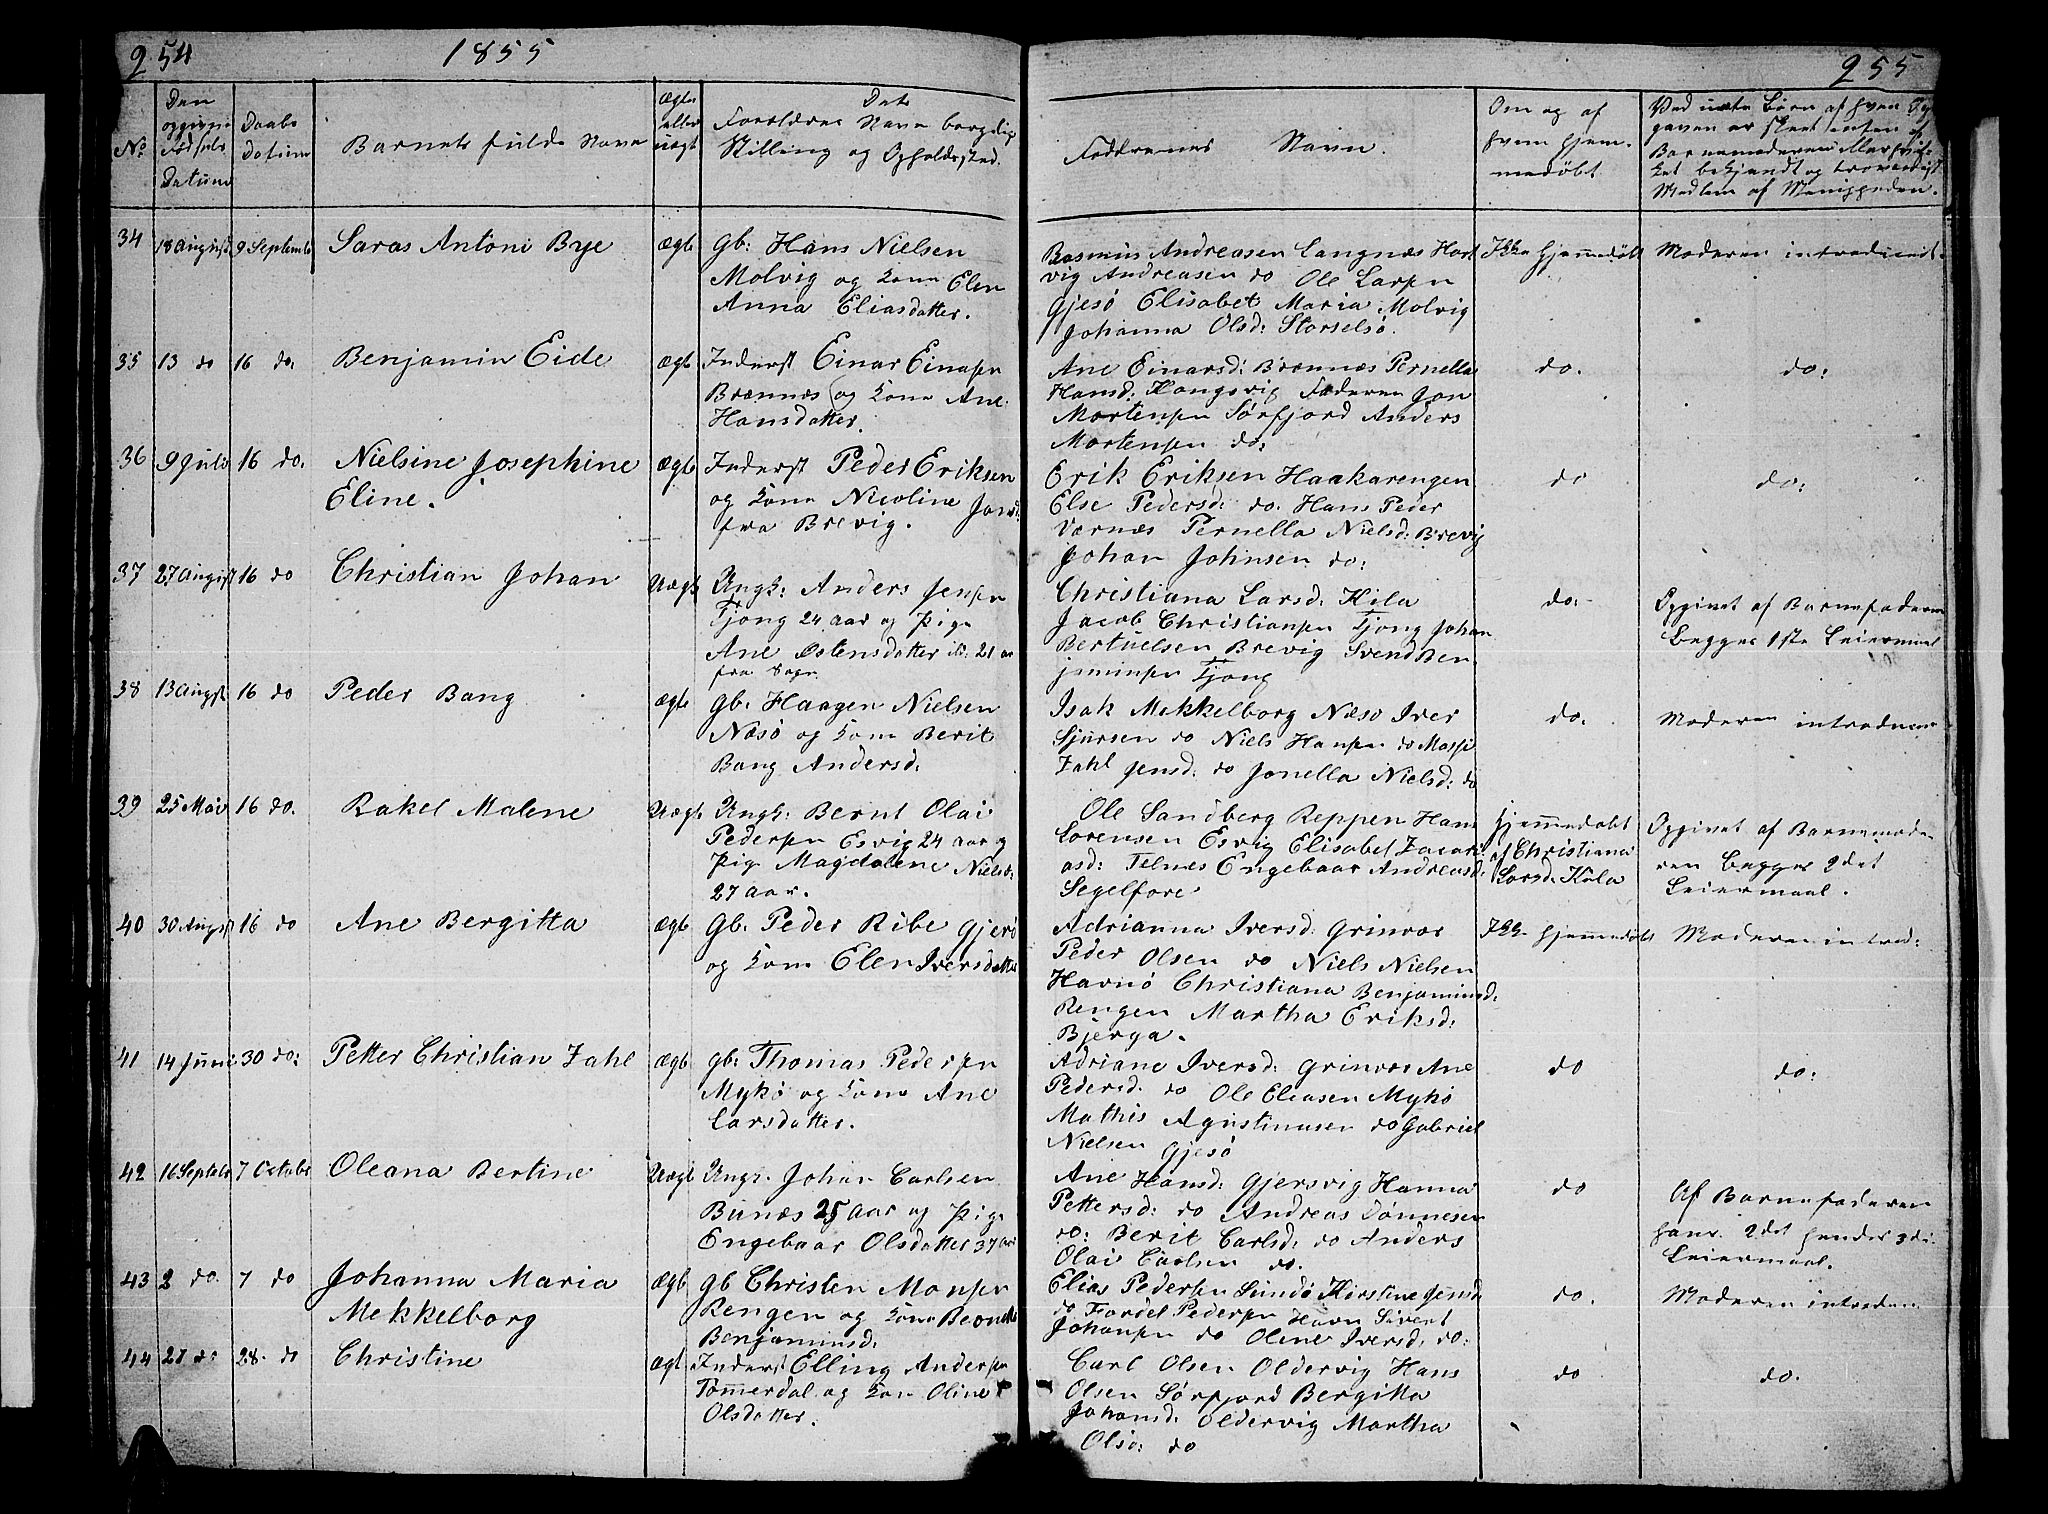 254
1855
255
No
Den opgivne Födsels Datum
Daabs Datum
Barnets fulde Navn
Ægte eller uægte
Forældrenes Navn borgelig Stilling og Opholdssted.
Faddrenes Navn.
Om og af hvem hjemmedöbt
Ved uægte Börn af hvem Opgaven er skeet enten af Barnemoderen eller
bekjendt og troværdigt
Medlem af Menigheden.
34 18 August 9 September Saras Antoni Bye ægte Gb: Hans Nielsen
Molvig og Kone Elen
Anna Eliasdatter.
Rasmus Andreasen Langnæs Hart
vig Andreasen do Ole Larsen
Gjesö Elisabet Maria Molvig
Johanna Olsd: Storselsö.
Ikke hjemmedöbt
Moderen introduceret.
35 13 do 16 do. Benjamin Eide ægte Inderst Einar Einarsen
Brennæs og Kone Ane
Hansdatter.
Ane Einarsd: Brennæs Pernella
Hansd: Kongsvig Faderen Jon
Mortensen Sörfjord Anders
Mortensen do:
do.
do:
36 9 Juli 16 do. Nielsine Josephine
Eline.
ægte Inderst Peder Eriksen
og Kone Nicoline Jansd:
fra Brevig.
Erik Eriksen Haakarengen
Else Pedersd: do. Hans Peder
Vornæs Pernella Nielsd: Brevig
Johan Johnsen do:
do
do:
37 27 August 16 do Christian Johan Uægte Ungk: Anders Jensen
Tjong 24 aar og Pige
Ane Östensdatter 21 aar
fra
Christiana Larsd: Kila
Jacob Christiansen Tjong Johan
Bertuelsen Brevig Svend Ben
jaminsen Tjong
do:
Opgivet af Barnefaderen
Begges 1ste Leiermaal
38 13 August 16 do Peder Bang ægte Gb: Haagen Nielsen
Næsö og Kone Berit
Bang Andersd:
Isak Mekkelborg Næsö Iver
Sjursen do Niels Hansen do Massi
Zahl Jensd: do Jonella Nielsd: do
do.
Moderen introducer
39 25 Mai 16 do. Rakel Malene Uægte Ungk: Bernt Olai
Pedersen Esvig 24 aar og
Pige Magdalene Nielsd:
27 aar.
Ole Sandberg Reppen Hans
Sorensen Esvig Elisabet Zacari
asd: Telnæs Engebaar Andreasd:
Segelfore
Hjemmedöbt
af Christiana
Larsd: Kila
Opgivet af Barnemode
ren Begges 2det
Leiermaal.
40 30 August 16 do Ane Bergitta ægte Gb. Peder Ribe Gjerö
og Kone Elen Iversdatter
Adrianna Iversd: Grinvær
Peder Olsen do Niels Nielsen
Havnö Christiana Benjaminsd:
Rengen Martha Eriksd:
Bjerga.
Ikke hjemmedöbt
Moderen introd:
41 14 Juni 30 do: Petter Christian Zahl ægte Gb: Thomas Pedersen
Mykö og Kone Ane
Larsdatter.
Adriane Iversd: Grinvær Ane
Pedersd: do Ole Eliasen Mykö
Mathis Agustinusen do Gabriel
Nielsen Gjesö
do
do:
42 16 Septebr 7 October Oleana Bertine Uægte Ungk. Johan Carlsen
Bunæs 25 Aar og Pige
Engebaar Olsdatter 37 aar
Ane Hansd: Gjersvig Hanna
Pettersd: do Andreas Dönnesen
do: Berit Carlsd: do Anders
Olai Carlsen do.
do
Af Barnefaderen
hans 2det hendes 3die
Leiermaal.
43 2 do. 7 do Johanna Maria
Mekkelborg
ægte Gb Christen Monsen
Rengen og Kone
Benjaminsd:
Elias Pedersen Sundö Kirstine Jensd:
do Pedersen Havn Sivert
Johansen do Oline Iversd: do:
do.
Moderen introducer
44 27 do 28. do Christine ægte Inderst Elling Andersen
Tömmerdal og Kone Oline
Olsdatter.
Carl Olsen Oldervig Hans
Olsen Sörfjord Bergitta
Johansd: Oldervig Martha
Olsd: do
do
do.